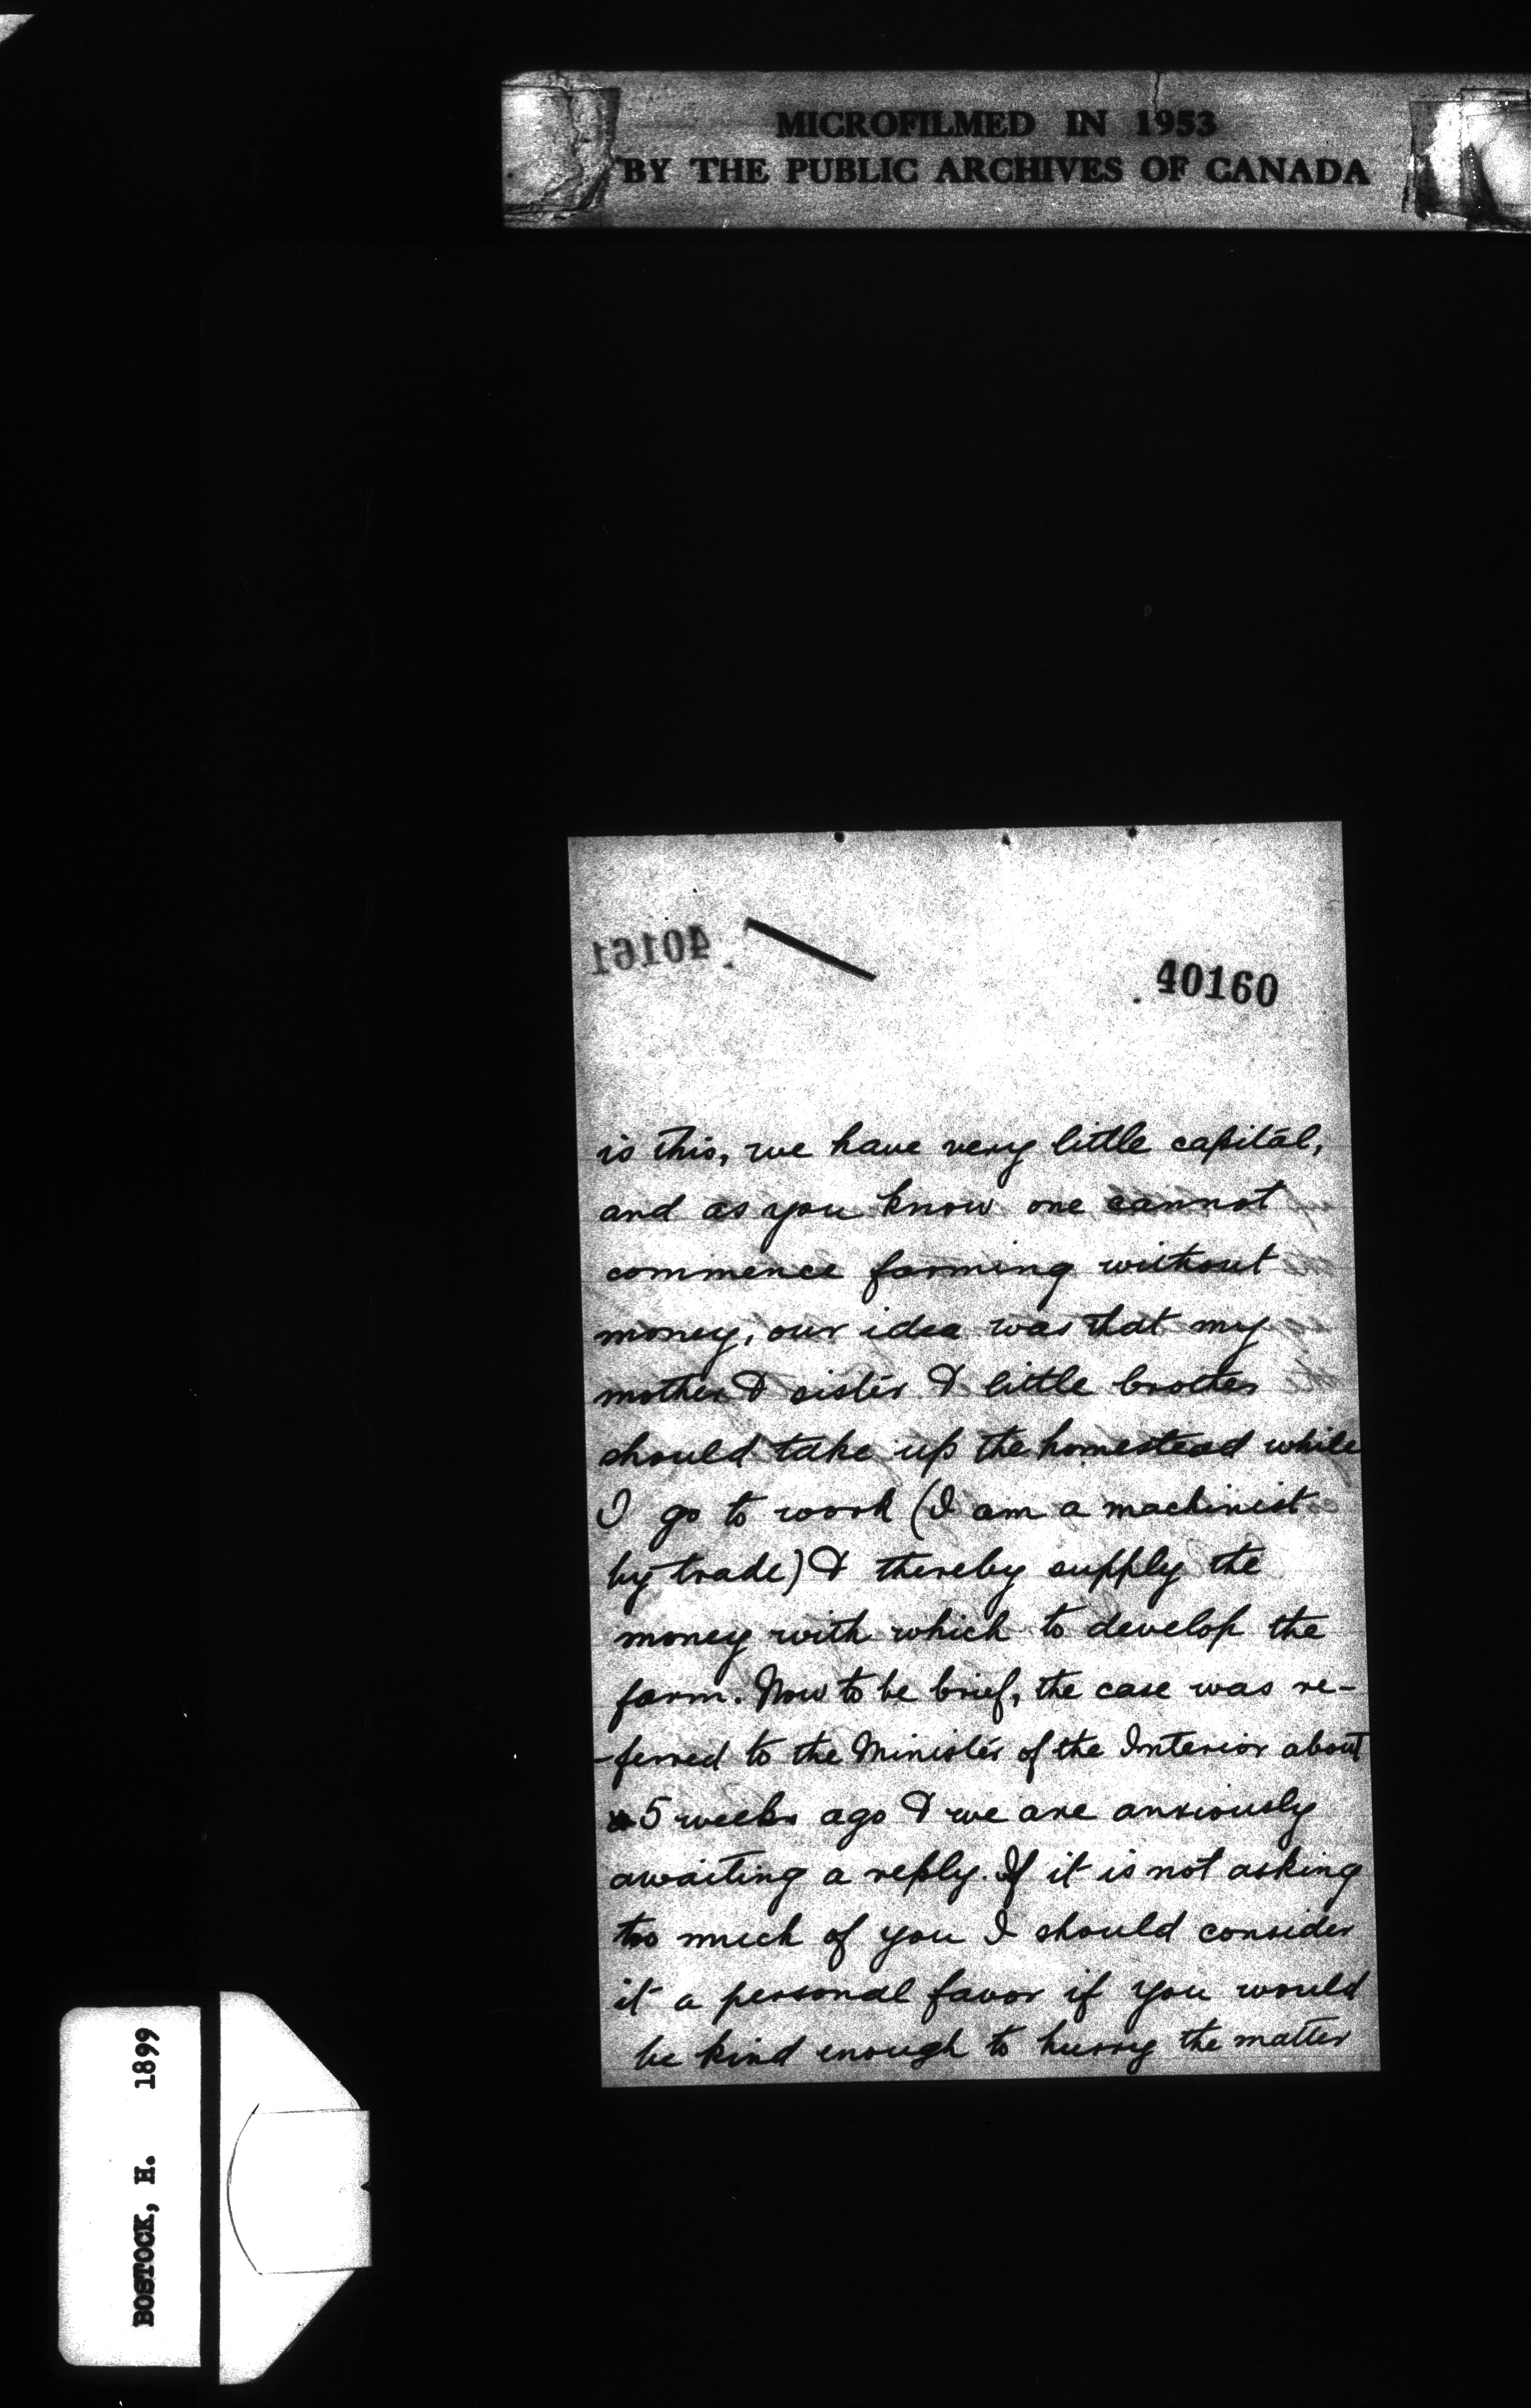 MICROFILMED IN 1953
BY THE PUBLIC ARCHIVES OF CANADA
40161
40160
is this, we have very little capital,
and as you know one cannot
commence farming without
money, our idea was that my
mother & sister & little brother
should take up the homestead while
I go to work (I am a machinist
by trade) & thereby supply the
money with which to develop the
farm. Now to be brief, the case was re-
-ferred to the Minister of the Interior about
5 weeks ago & we are anxiously
awaiting a reply. If it is not asking
too much of you I should consider
it a personal favor if you would
be kind enough to hurry the matter
BOSTOCK, H. 1899